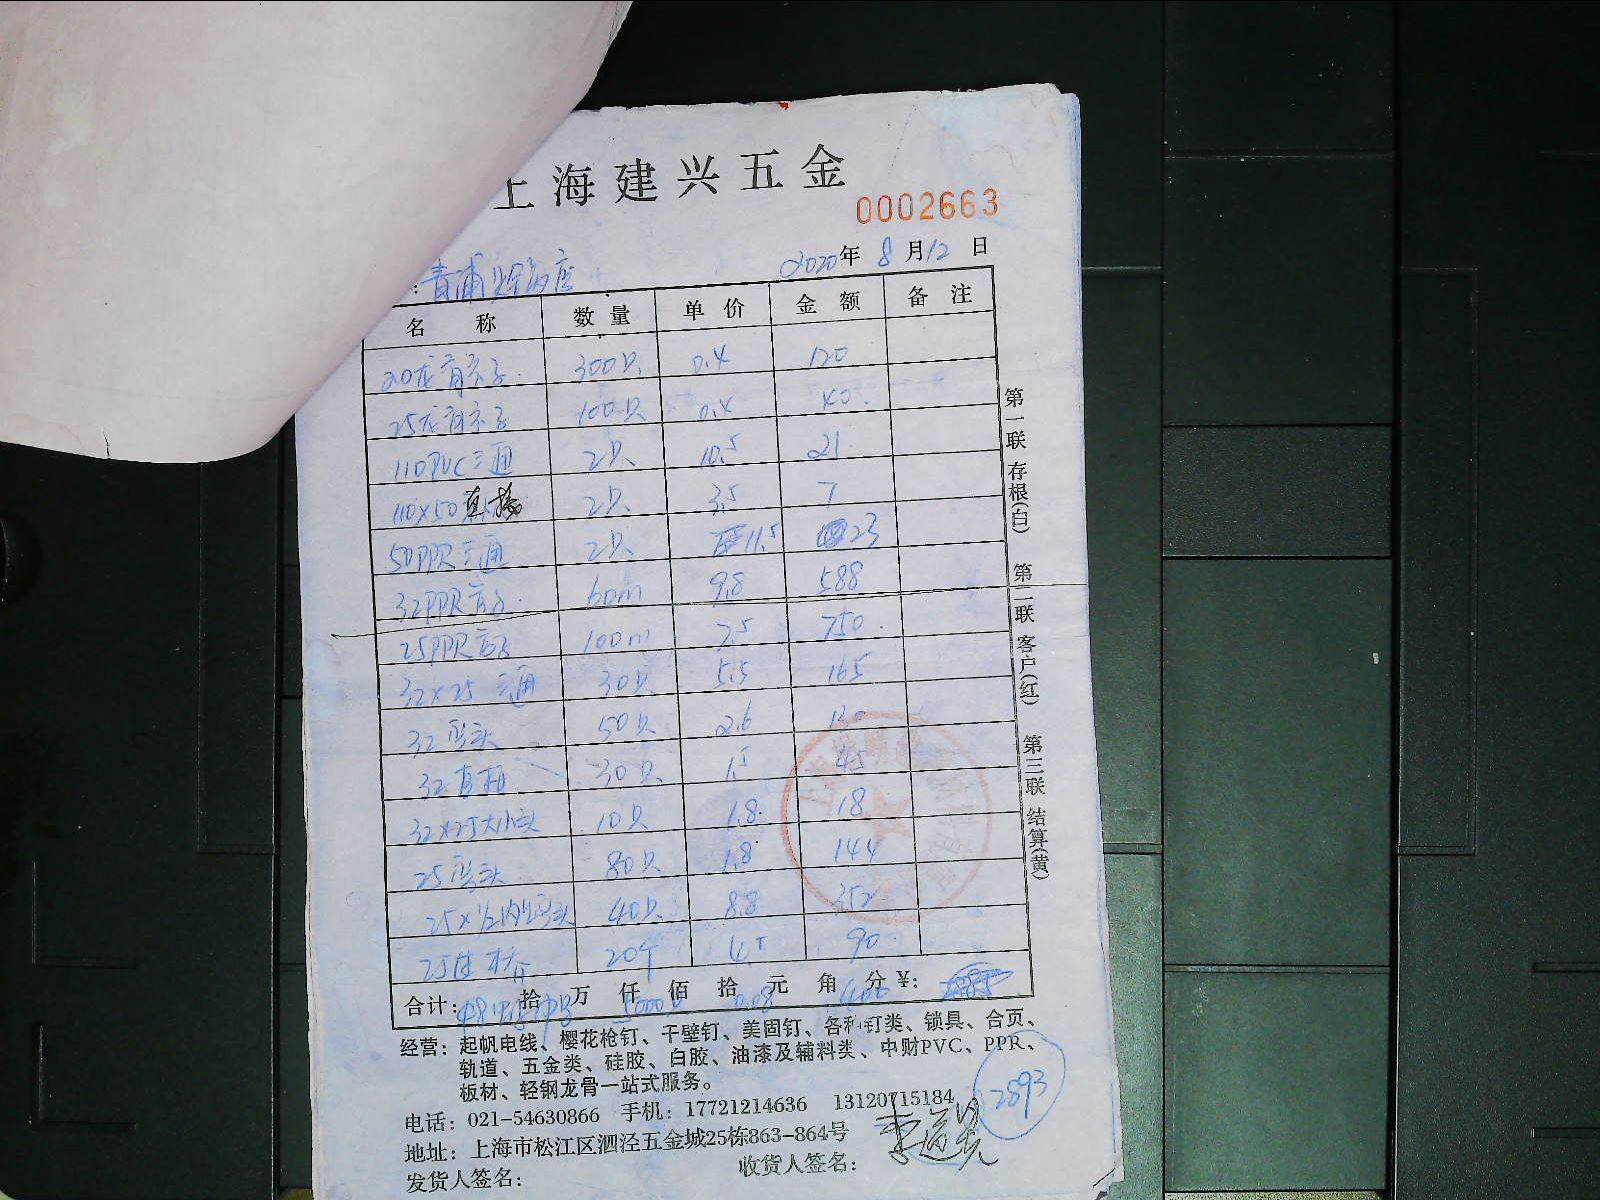 上海建兴五金
0002663
2020年 8月12日
青浦
名称 数量 单价 金额 备注
20龙骨 300只 0.4 120
25龙骨 100只 0.4 40
110PVC三通 2只 10.5 21
110×50直接 2只 3.5 7
50PPR三通 2只 11.5 23
32PPR管子 60m 9.8 588
25PPR管子 100m 7.5 750
32×25三通 30只 5.5 165
32弯头 50只 2.6 130
32直接 30只 1.5 45
32×25大小头 10只 1.8 18
25弯头 80只 1.8 144
25×1/2内丝弯头 40只 8.8 352
25 20个 4.5 90
合计: 拾 万 仟 佰 拾 元 角 分 ¥:
0.08
2893
经营: 起帆电线、樱花枪钉、干壁钉、美固钉、各种钉类、锁具、合页、
轨道、五金类、硅胶、白胶、油漆及辅料类、中财PVC、PPR、
板材、轻钢龙骨一站式服务。
电话: 021-54630866 手机: 17721214636 13120715184
地址: 上海市松江区泗泾五金城25栋863-864号
发货人签名: 收货人签名:
第一联 存根(白) 第二联 客户(红) 第三联 结算(黄)